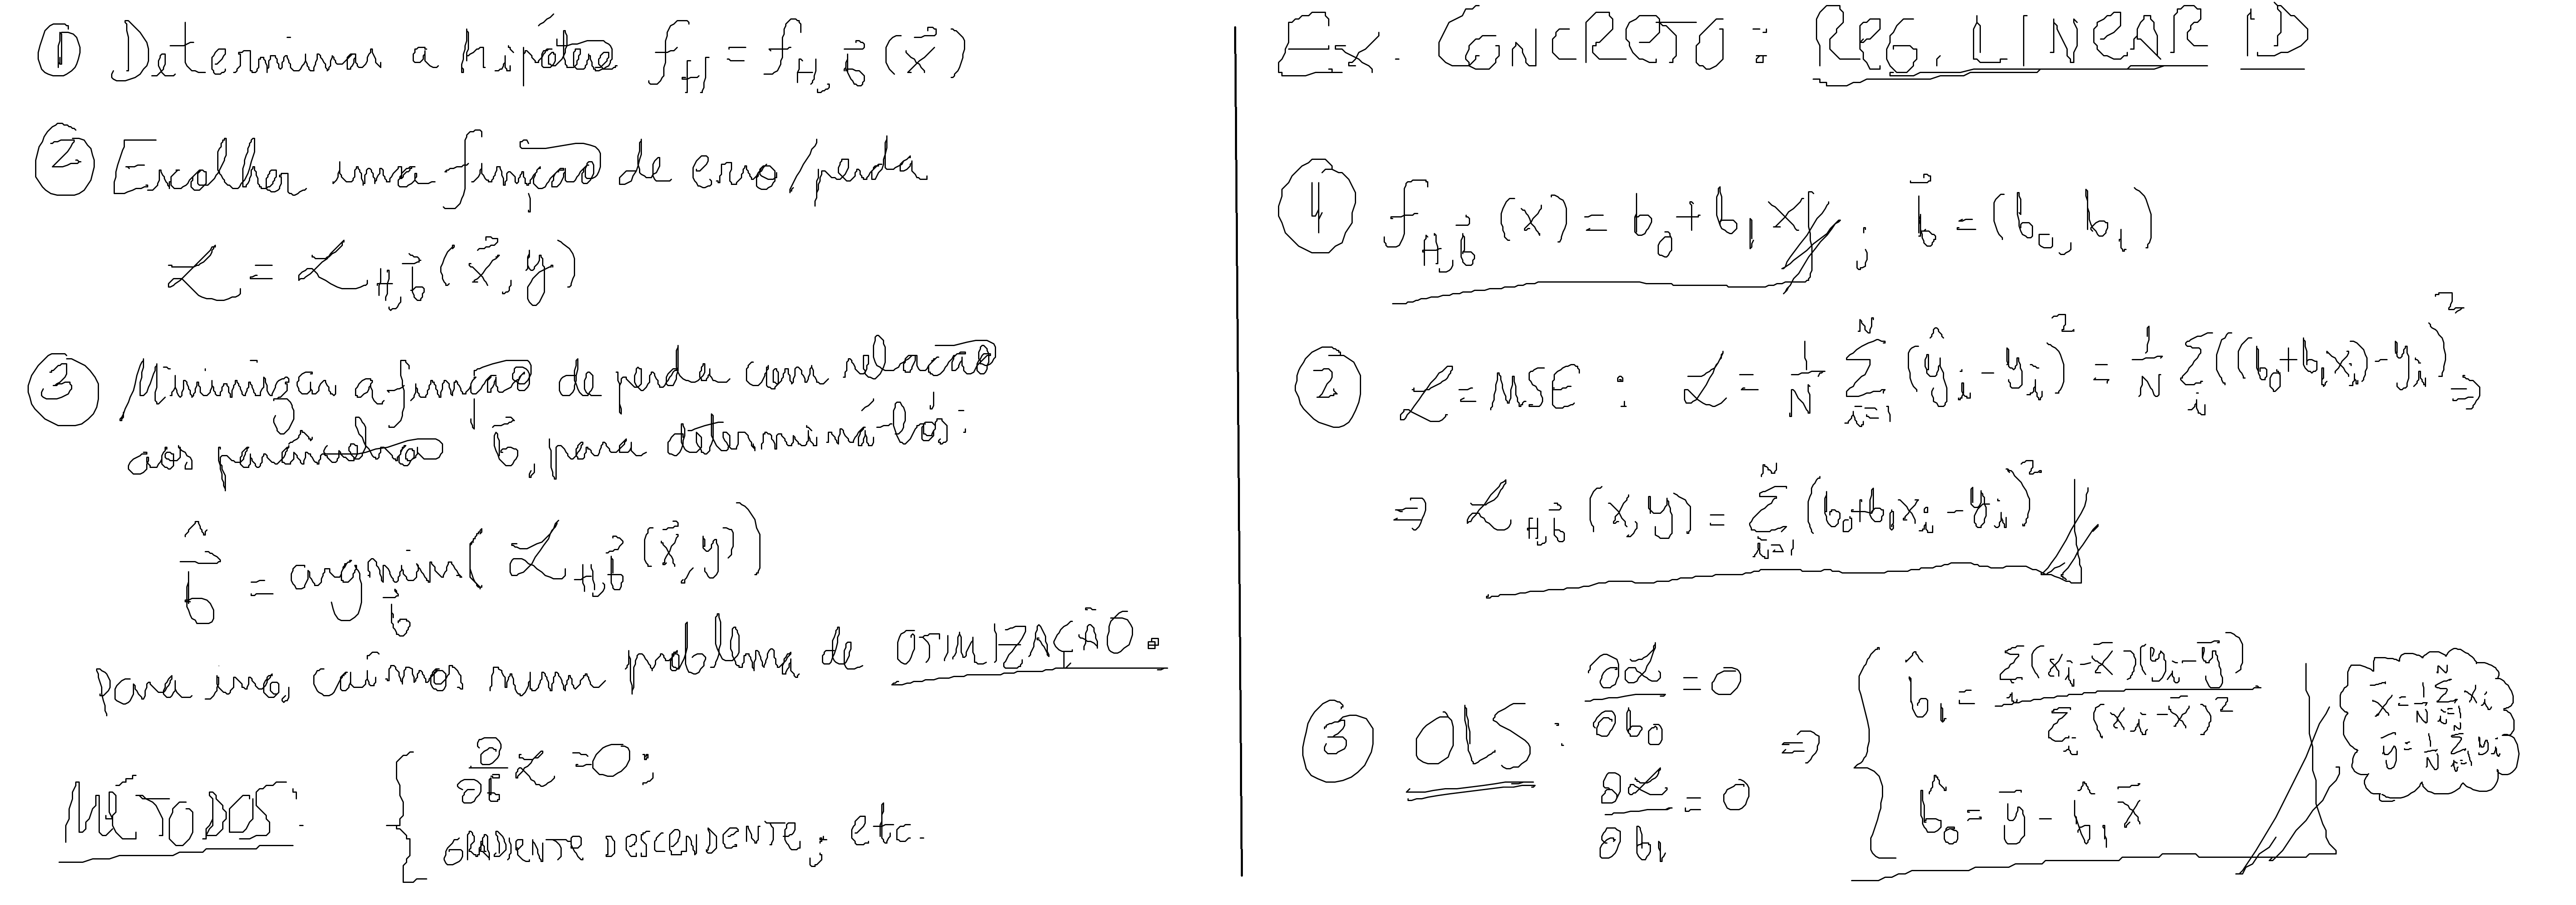 ① Determinar a hipótese f_H = f_{H,b⃗}(x⃗)
② Escolher uma função de erro/perda
ℒ = ℒ_{H,b⃗}(x⃗, y)
③ Minimizar a função de perda com relação
aos parâmetros b⃗, para determiná-los:
b⃗̂ = argmin_{b⃗}(ℒ_{H,b⃗}(x⃗, y))
Para isso, caímos num problema de OTIMIZAÇÃO.
MÉTODOS: { ∂/∂b⃗ ℒ = 0;
GRADIENTE DESCENDENTE; etc.
Ex. CONCRETO: REG. LINEAR 1D
① f_{H,b⃗}(x) = b₀ + b₁x ; b⃗ = (b₀, b₁)
② ℒ = MSE : ℒ = 1/N ∑_{i=1}^{N} (ŷᵢ - yᵢ)² = 1/N ∑_i ((b₀+b₁xᵢ) - yᵢ)² ⇒
⇒ ℒ_{H,b⃗}(x, y) = ∑_{i=1}^{N} (b₀+b₁xᵢ - yᵢ)²
③ OLS : ∂ℒ/∂b₀ = 0
∂ℒ/∂b₁ = 0
⇒ { b̂₁ = ∑_i (xᵢ - x̄)(yᵢ - ȳ) / ∑_i (xᵢ - x̄)²
b̂₀ = ȳ - b̂₁x̄
x̄ = 1/N ∑_{i=1}^{N} xᵢ
ȳ = 1/N ∑_{i=1}^{N} yᵢ